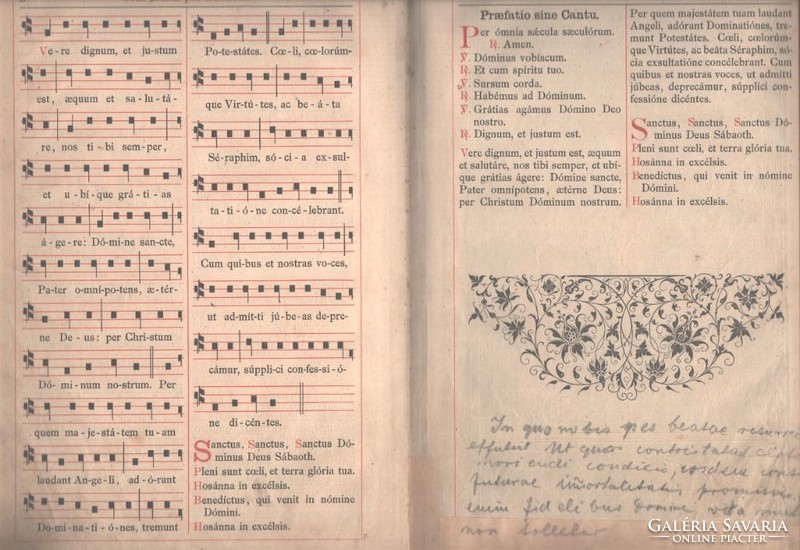 Vere dignum, et justum
est, æquum et sa-lu-tá-
re, nos ti-bi sem-per,
et u-bí-que grá-ti-as
á-ge-re: Dó-mi-ne sanc-te,
Pa-ter o-mní-po-tens, æ-tér-
ne De-us: per Chri-stum
Dó-mi-num no-strum. Per
quem ma-je-stá-tem tu-am
laudant An-ge-li, ad-ó-rant
Do-mi-na-ti-ó-nes, tremunt
Po-te-státes. Cœ-li, cœ-lorúm-
que Vir-tú-tes, ac be-á-ta
Sé-raphim, só-ci-a ex-sul-
ta-ti-ó-ne con-cé-lebrant.
Cum qui-bus et nostras vo-ces,
ut ad-mít-ti jú-be-as de-pre-
cámur, súppli-ci con-fes-si-ó-
ne di-cén-tes.
Sanctus, Sanctus, Sanctus Dó-
minus Deus Sábaoth.
Pleni sunt cœli, et terra glória tua.
Hosánna in excélsis.
Benedíctus, qui venit in nómine
Dómini.
Hosánna in excélsis.
Præfatio sine Cantu.
Per ómnia sǽcula sæculórum.
℟. Amen.
℣. Dóminus vobíscum.
℟. Et cum spíritu tuo.
℣. Sursum corda.
℟. Habémus ad Dóminum.
℣. Grátias agámus Dómino Deo
nostro.
℟. Dignum, et justum est.
Vere dignum, et justum est, æquum
et salutáre, nos tibi semper, et ubí-
que grátias ágere: Dómine sancte,
Pater omnípotens, ætérne Deus:
per Christum Dóminum nostrum.
Per quem majestátem tuam laudant
Angeli, adórant Dominatiónes, tre-
munt Potestátes. Cœli, cœlorúm-
que Virtútes, ac beáta Séraphim, só-
cia exsultatióne concélebrant. Cum
quibus et nostras voces, ut admítti
júbeas, deprecámur, súpplici con-
fessióne dicéntes.
Sanctus, Sanctus, Sanctus Dó-
minus Deus Sábaoth.
Pleni sunt cœli, et terra glória tua.
Hosánna in excélsis.
Benedíctus, qui venit in nómine
Dómini.
Hosánna in excélsis.
In quo nobis spes beatae resurrec
effulsit Ut quos contristat
moriendi condicio, eosdem cons
futurae imortalitatis promissio
enim fidelibus domine vita mu
non tollitur
GALÉRIA SAVARIA
ONLINE PIACTÉR